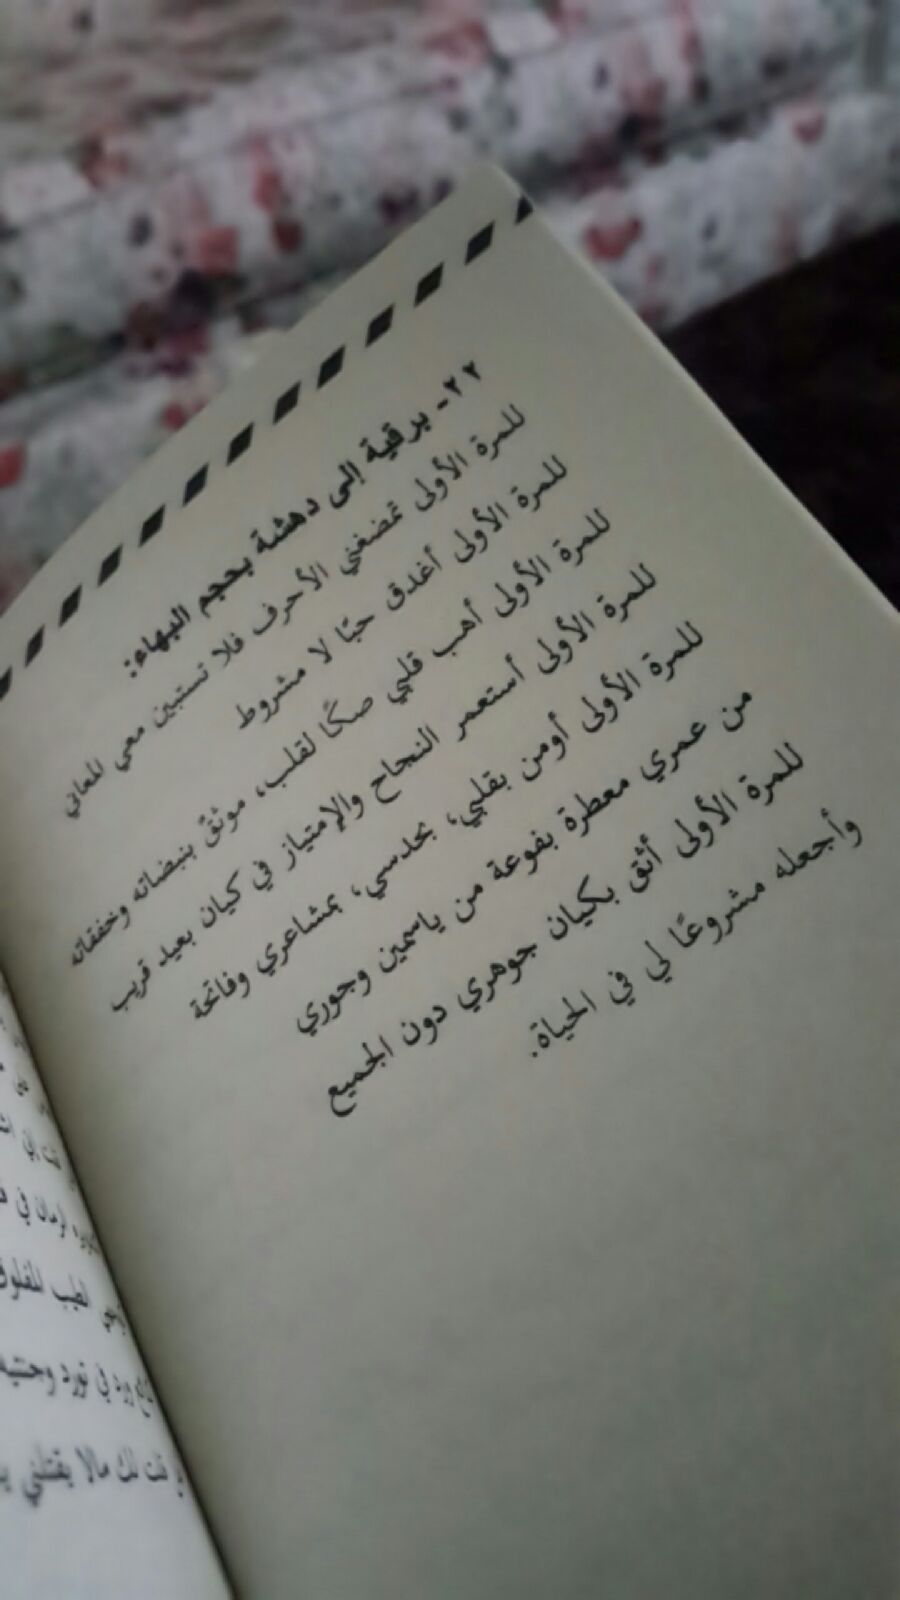 ٢٢- برقية إلى دهشة بحجم البهاء:
للمرة الأولى تمضغني الأحرف فلا تستبين معي المعاني
للمرة الأولى أغدق حبًا لا مشروط
للمرة الأولى أهب قلبي صكًا لقلب، موثقٌ بنبضاته وخفقاته
للمرة الأولى أستعمر النجاح والإمتياز في كيان بعيد قريب
للمرة الأولى أومن بقلبي، بحدسي، بمشاعري وفاتحة
من عمري معطرة بفوعة من ياسمين وجوري
للمرة الأولى أثق بكيان جوهري دون الجميع
وأجعله مشروعًا لي في الحياة.
في
الطب
ورد في تورد وجنتيه
لك مالا يقتلني